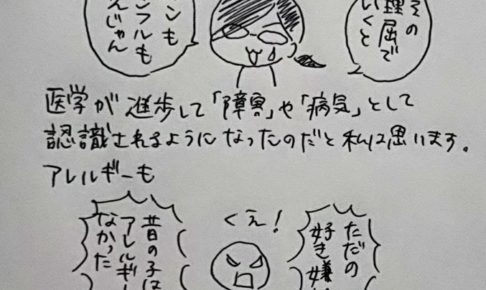 その
理屈で
いくと
ンも
ンフルも
えじゃん
医学が進歩して「障害」や「病気」として
認識されるようになったのだと私は思います。
アレルギーも
ただの
好き嫌い
くえ!
昔の子は
アレルギー
なかった